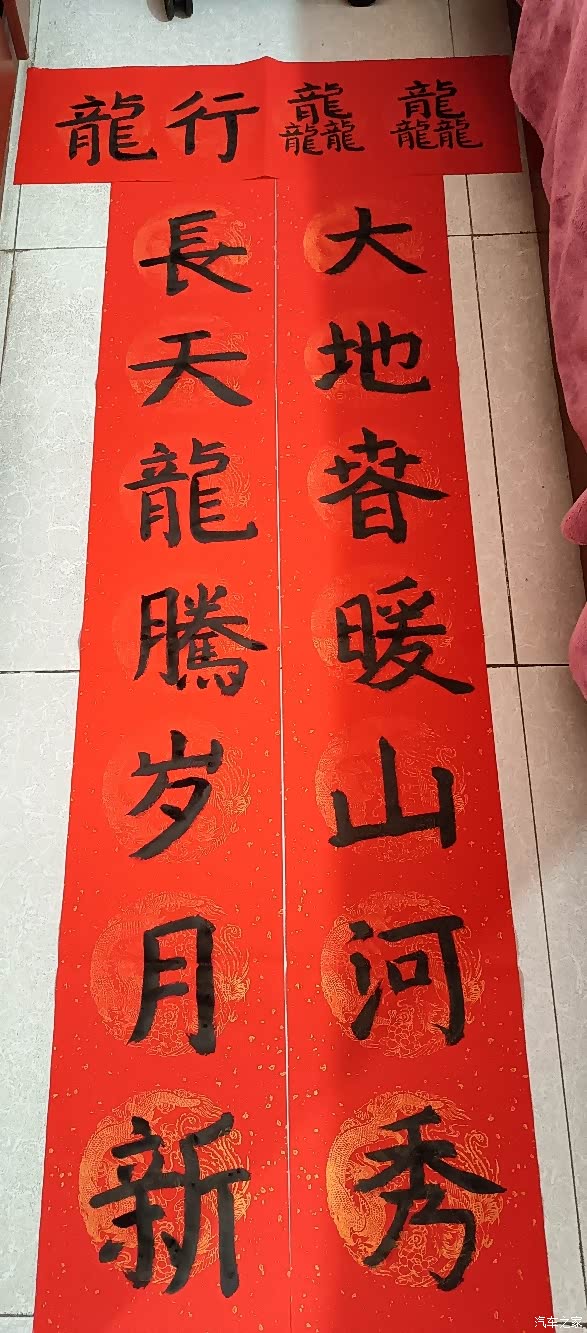 龍行龘龘
大地萅暖山河秀
長天龍騰岁月新
汽车之家